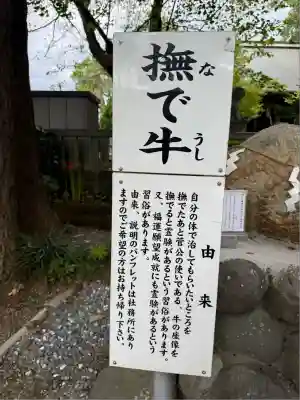 撫で牛
な
うし
由来
自分の体で治してもらいたいところを
撫でたあと菅公の使いである、牛の座像を
撫でると霊験があるという習俗があります。
又、福運願望成就にも霊験があるという
習俗があります。
由来、説明のパンフレットは社務所にあり
ますのでご希望の方はお持ち帰り下さい。